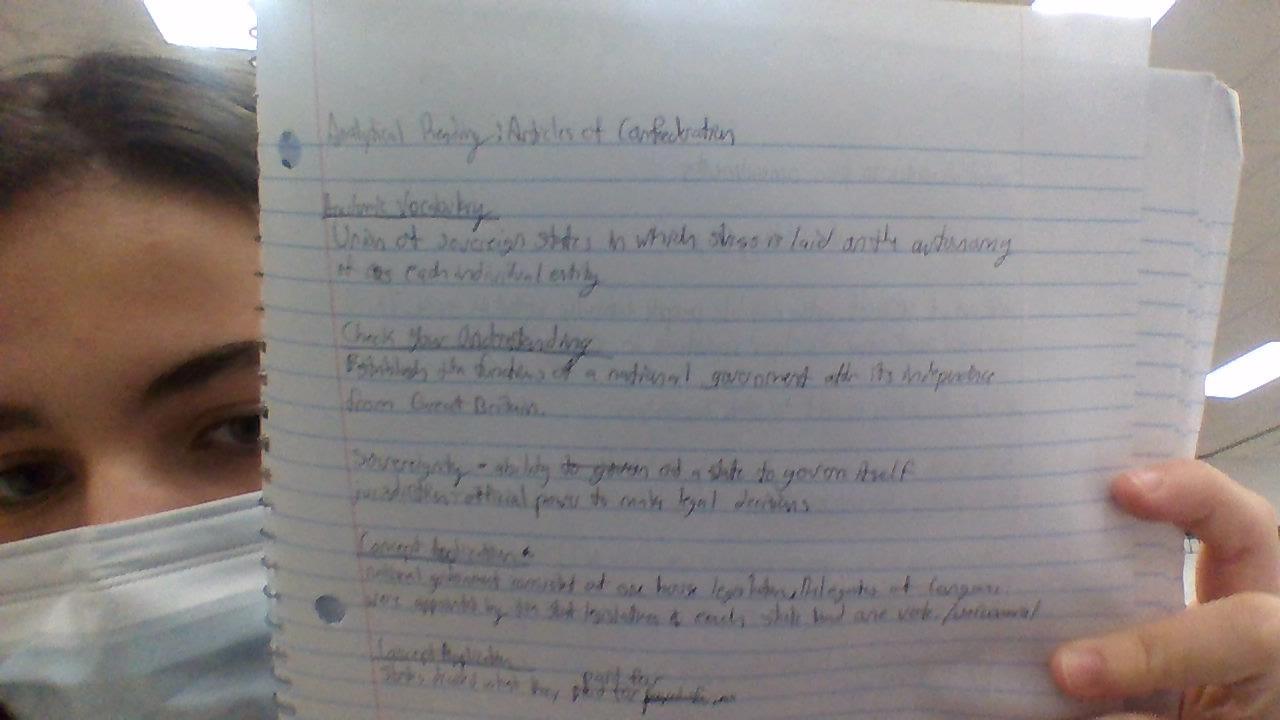 Analytical Reading: Articles of Confederation
Academic Vocabulary
Union of sovereign states in which stress is laid on the autonomy
of each individual entity
Check Your Understanding
Establish the functions of a national government after its independence
from Great Britain.
Sovereignty - ability to govern of a state to govern itself
jurisdiction: official power to make legal decisions
Concept Application
national government consisted of one house legislature, Delegates of Congress
were appointed by the state legislatures & each state had one vote. /unicameral
Concept Application
paid for
States what they paid for